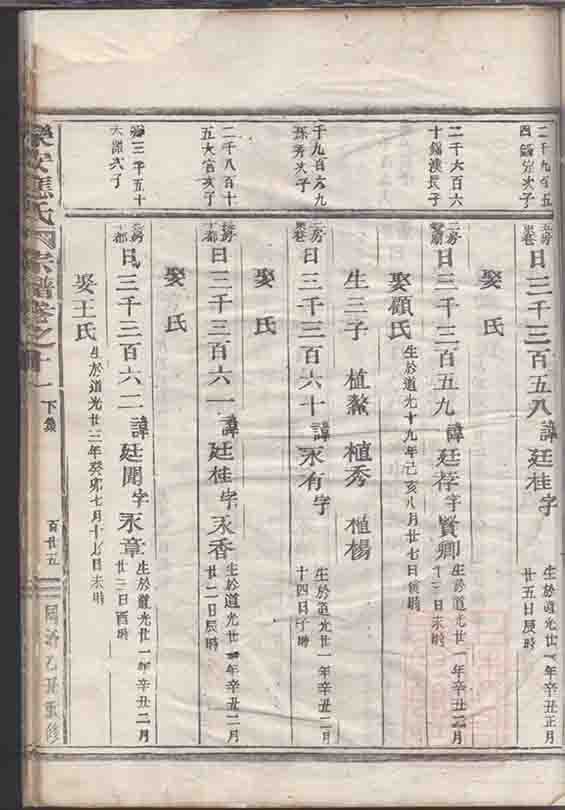 二千九百五
四錫
次子
五房
日三千三百五八諱廷桂字
生於道光廿一年辛丑正月
廿五日辰時
娶 氏
二千六百六
十錫漢長子
二房
日三千三百五九諱廷荐字賢卿
生於道光廿一年辛丑二月
日未時
娶顧氏生於道光十九年己亥八月廿七日寅時
生三子 植鰲 植秀 植楊
千九百六九
珠芳次子
房
日三千三百六十諱永有字
生於道光廿一年辛丑二月
十四日子時
娶 氏
二千八百十
五大官次子
日三千三百六一諱廷桂字永香
生於道光廿一年辛丑二月
廿二日辰時
娶 氏
三千五十
次子
房
都
日三千三百六二諱廷聞字永章
生於道光廿一年辛丑二月
廿三日酉時
娶王氏生於道光廿三年癸卯七月十七日未時
樂安應氏宗譜卷之十一 下集 百廿五 同治乙丑重修